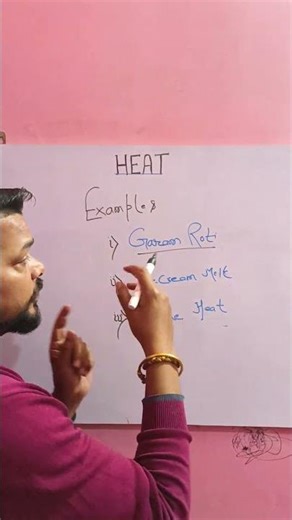 HEAT
Examples
i) Garam Roti
ii) -Cream Melt
iii) Heat